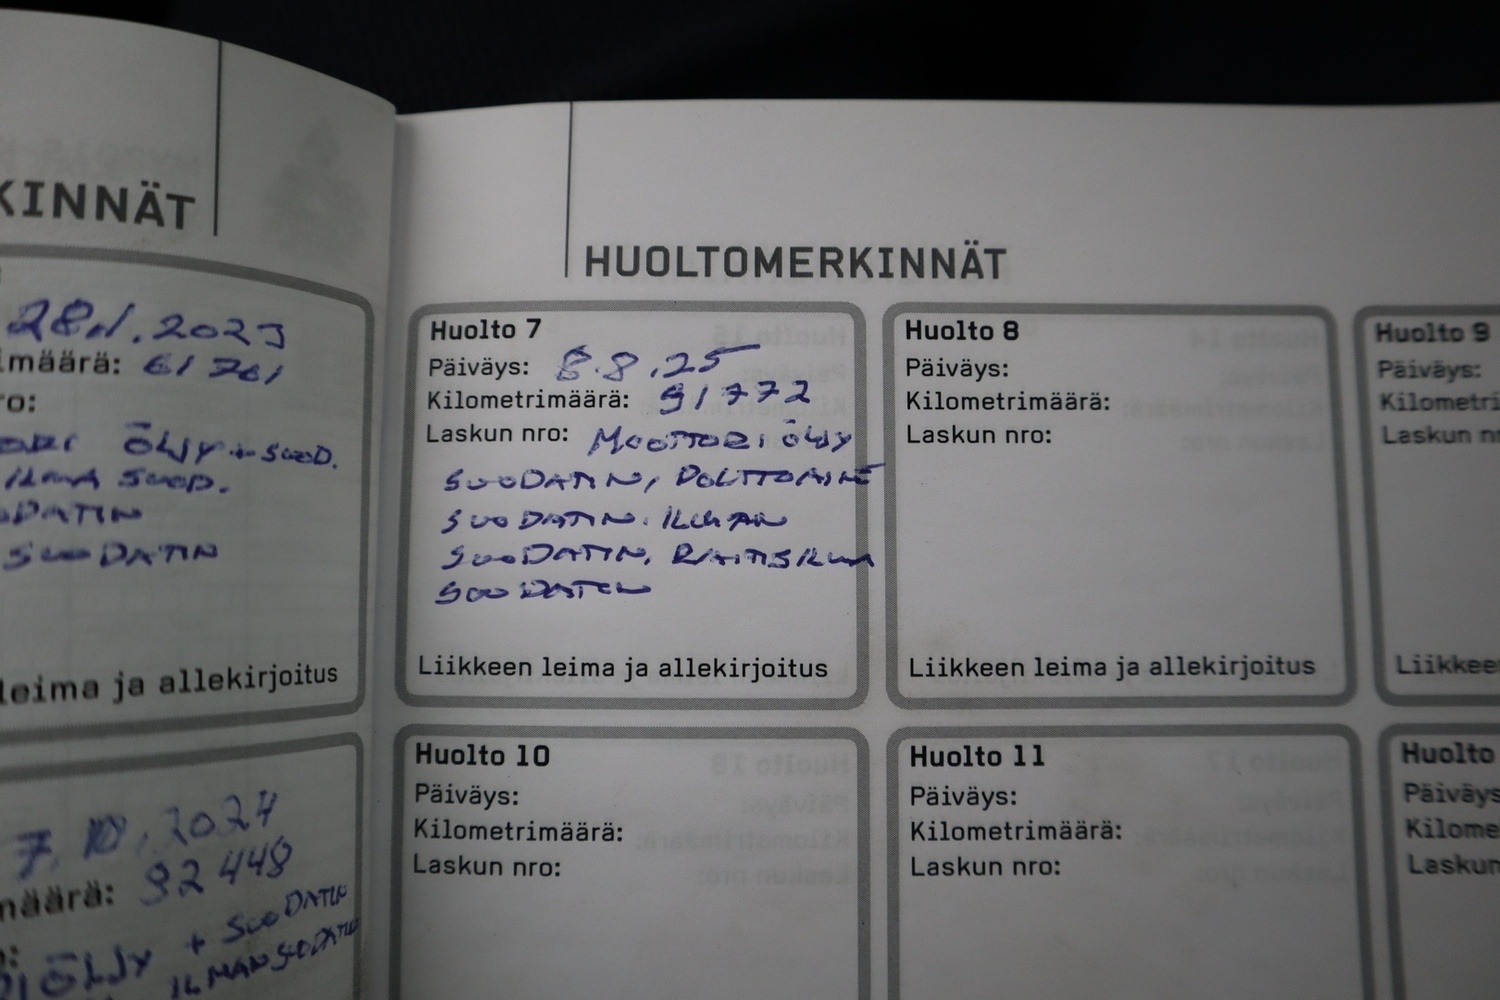 KINNÄT
28.1.2023
imäärä: 61761
ro:
ÖLJY + SUOD.
ILMA SUOD.
SUODATIN
leima ja allekirjoitus
7.10.2024
määrä: 92448
ÖLJY + SUODATIN
ILMANSUODATIN
HUOLTOMERKINNÄT
Huolto 7
Päiväys: 8.8.25
Kilometrimäärä: 91772
Laskun nro: MOOTTORIÖLJY
SUODATIN, POLTTOAINE
SUODATIN. ILMAN
SUODATIN, RAITISILMA
SUODATIN
Liikkeen leima ja allekirjoitus
Huolto 8
Päiväys:
Kilometrimäärä:
Laskun nro:
Liikkeen leima ja allekirjoitus
Huolto 9
Päiväys:
Kilometri
Laskun nr
Liikkee
Huolto 10
Päiväys:
Kilometrimäärä:
Laskun nro:
Huolto 11
Päiväys:
Kilometrimäärä:
Laskun nro:
Huolto
Päiväys
Kilome
Laskun